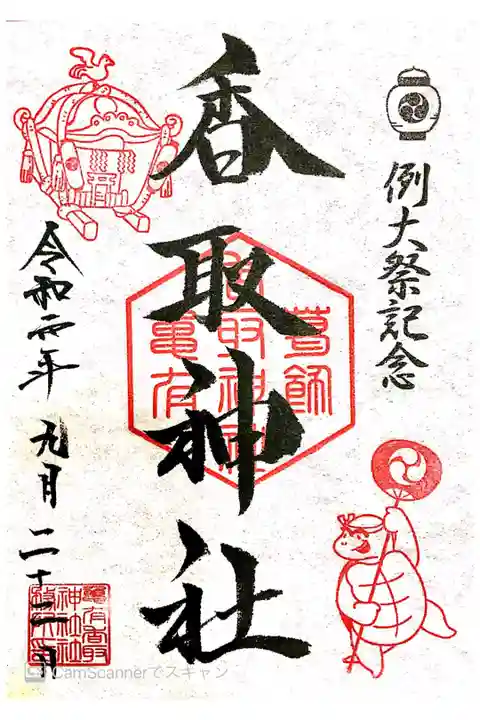 例大祭記念
香取神社
葛飾
香取神社
亀有
令和二年 九月二十二日
亀有香取
神社社
CamScannerでスキャン